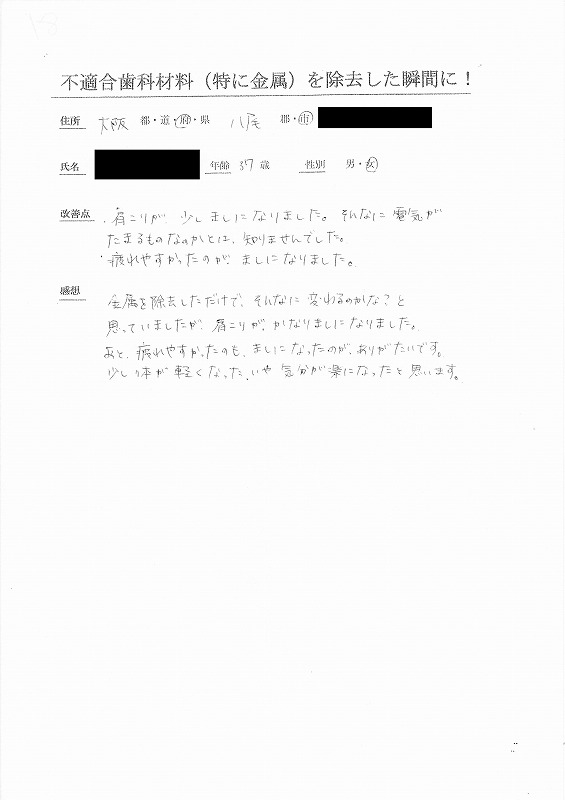 18
不適合歯科材料（特に金属）を除去した瞬間に！
住所 大阪 都・道・府・県 八尾 郡・市
氏名 年齢 37歳 性別 男・女
改善点 ・肩こりが 少しましになりました。そんなに電気が
たまるものなのかとは、知りませんでした。
・疲れやすかったのが、ましになりました。
感想 金属を除去しただけで、そんなに変わるのかな？と
思っていましたが、肩こりが、かなりましになりました。
あと、疲れやすかったのも、ましになったのが、ありがたいです。
少し体が軽くなった、いや気分が楽になったと思います。